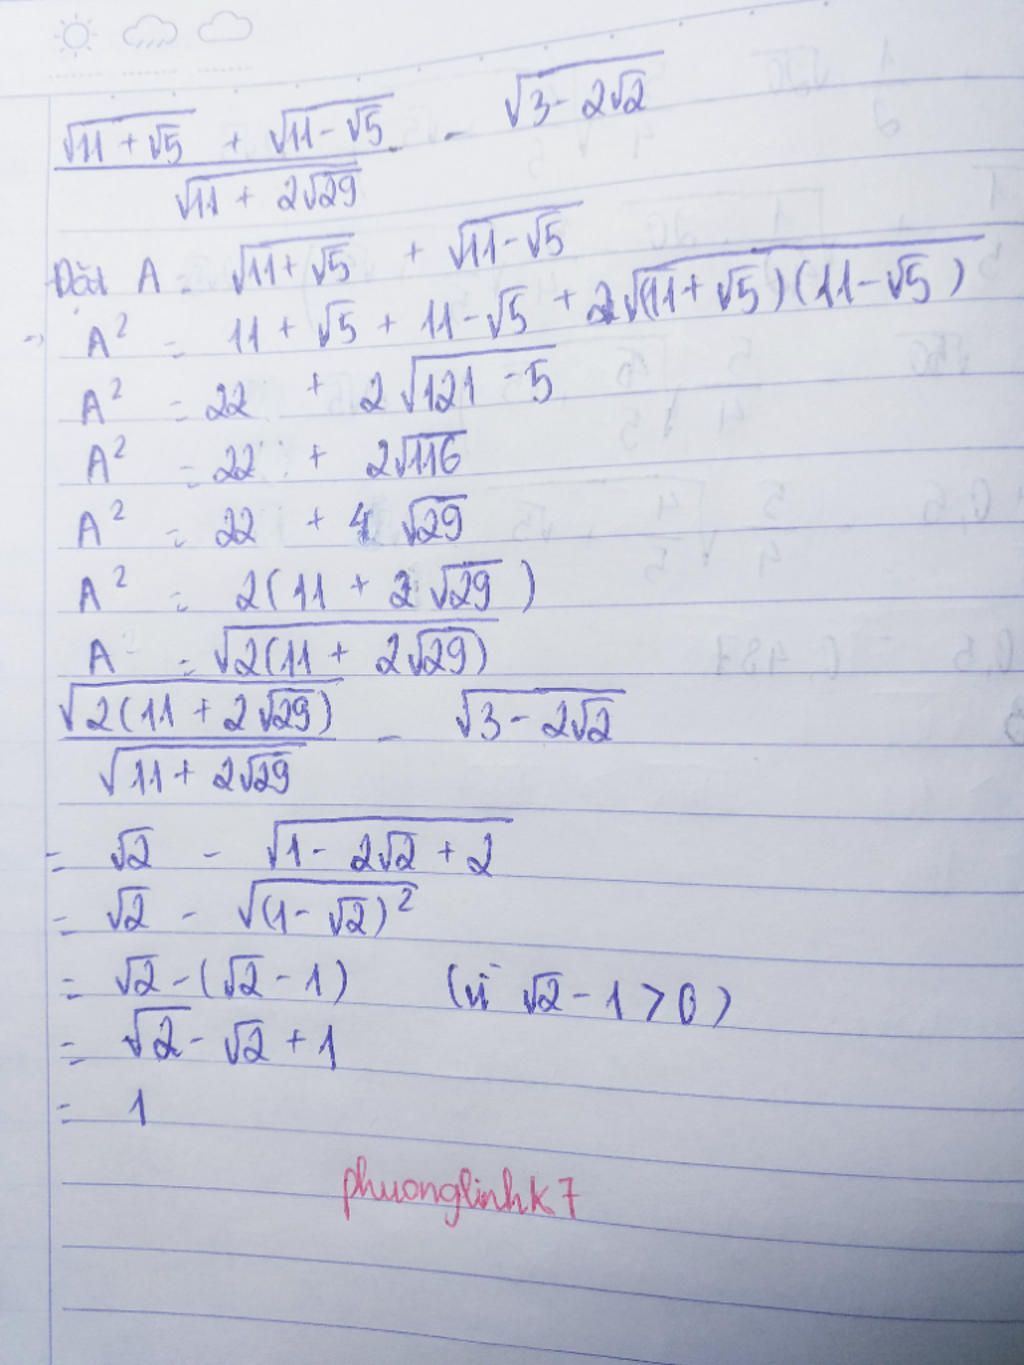 (√(11 + √5) + √(11 - √5)) / √(11 + 2√29) - √(3 - 2√2)
Đặt A = √(11 + √5) + √(11 - √5)
-> A² = 11 + √5 + 11 - √5 + 2√((11 + √5)(11 - √5))
A² = 22 + 2√(121 - 5)
A² = 22 + 2√116
A² = 22 + 4√29
A² = 2(11 + 2√29)
A = √(2(11 + 2√29))
√(2(11 + 2√29)) / √(11 + 2√29) - √(3 - 2√2)
= √2 - √(1 - 2√2 + 2)
= √2 - √((1 - √2)²)
= √2 - (√2 - 1) (vì √2 - 1 > 0)
= √2 - √2 + 1
= 1
phuonglinhk7